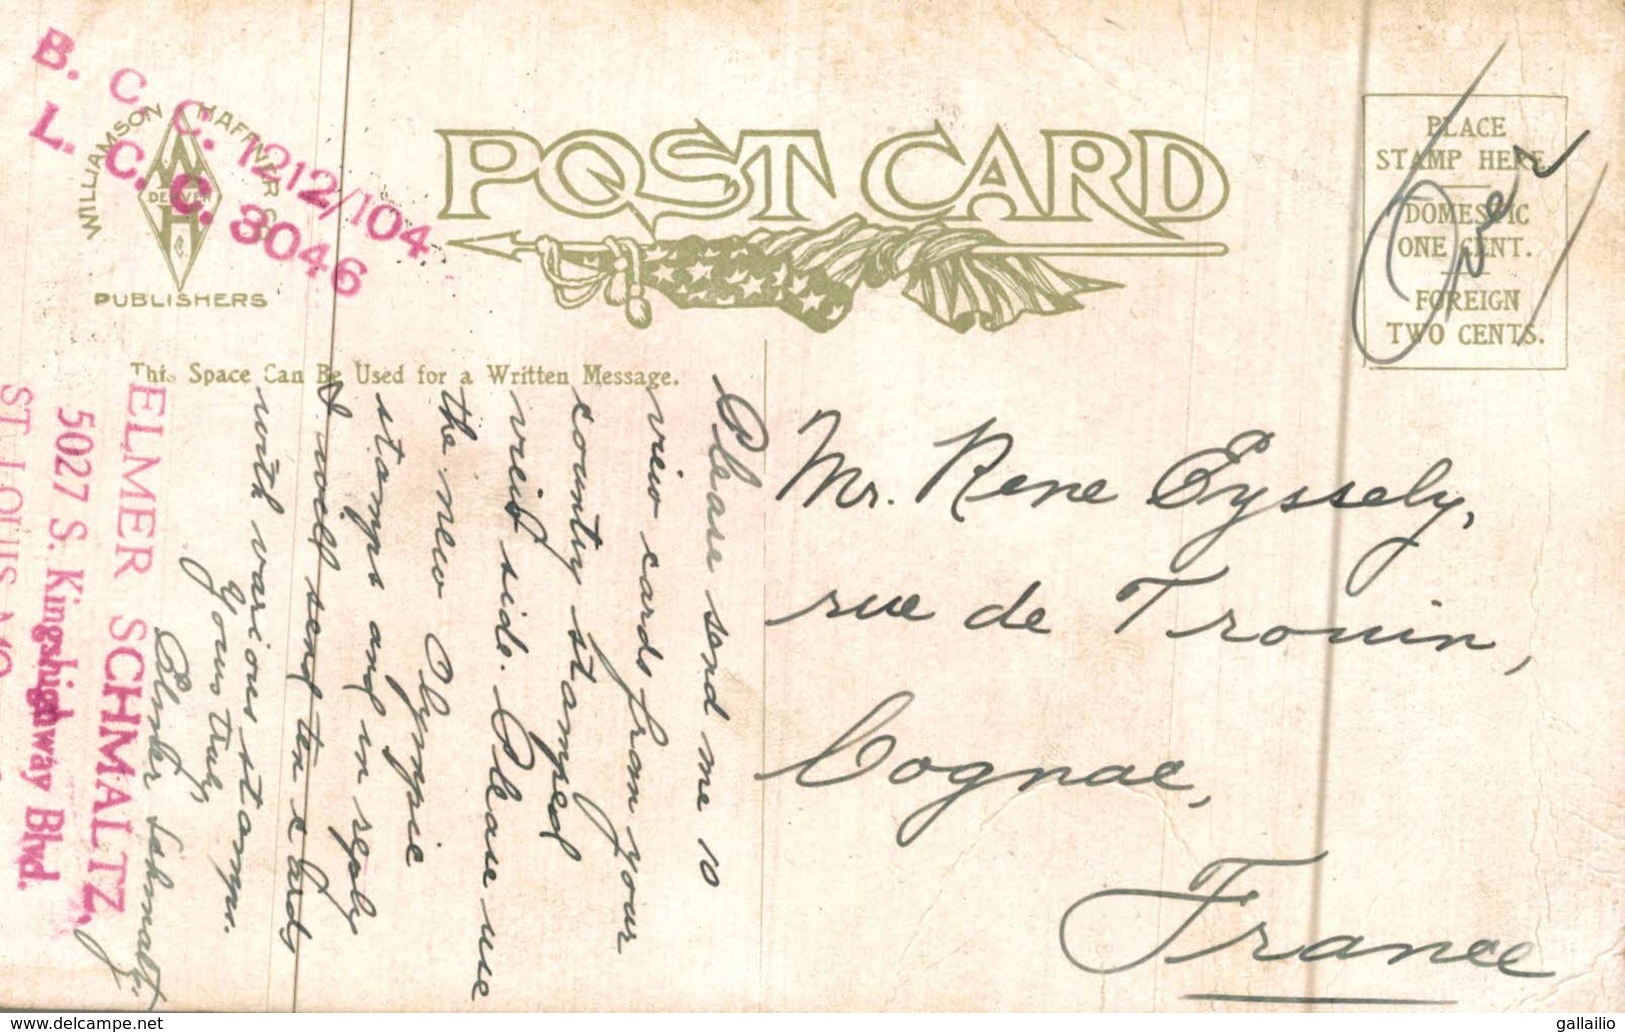 B. C. C. 1212/104
L. C. C. 3046
WILLIAMSON HAFFNER CO.
DENVER
PUBLISHERS
POST CARD
PLACE
STAMP HERE
DOMESTIC
ONE CENT.
FOREIGN
TWO CENTS.
Over
This Space Can Be Used for a Written Message.
Please send me 10
view cards from your
country stamped
view side. Please use
the new Olympic
stamps and in reply
I will send ten cards
with various stamps.
Yours truly,
Elmer Schmaltz
ELMER SCHMALTZ,
5027 S. Kingshighway Blvd.
ST. LOUIS, MO.
Mr. Rene Eyssely,
rue de Trouin,
Cognac,
France
delcampe.net
gallailio